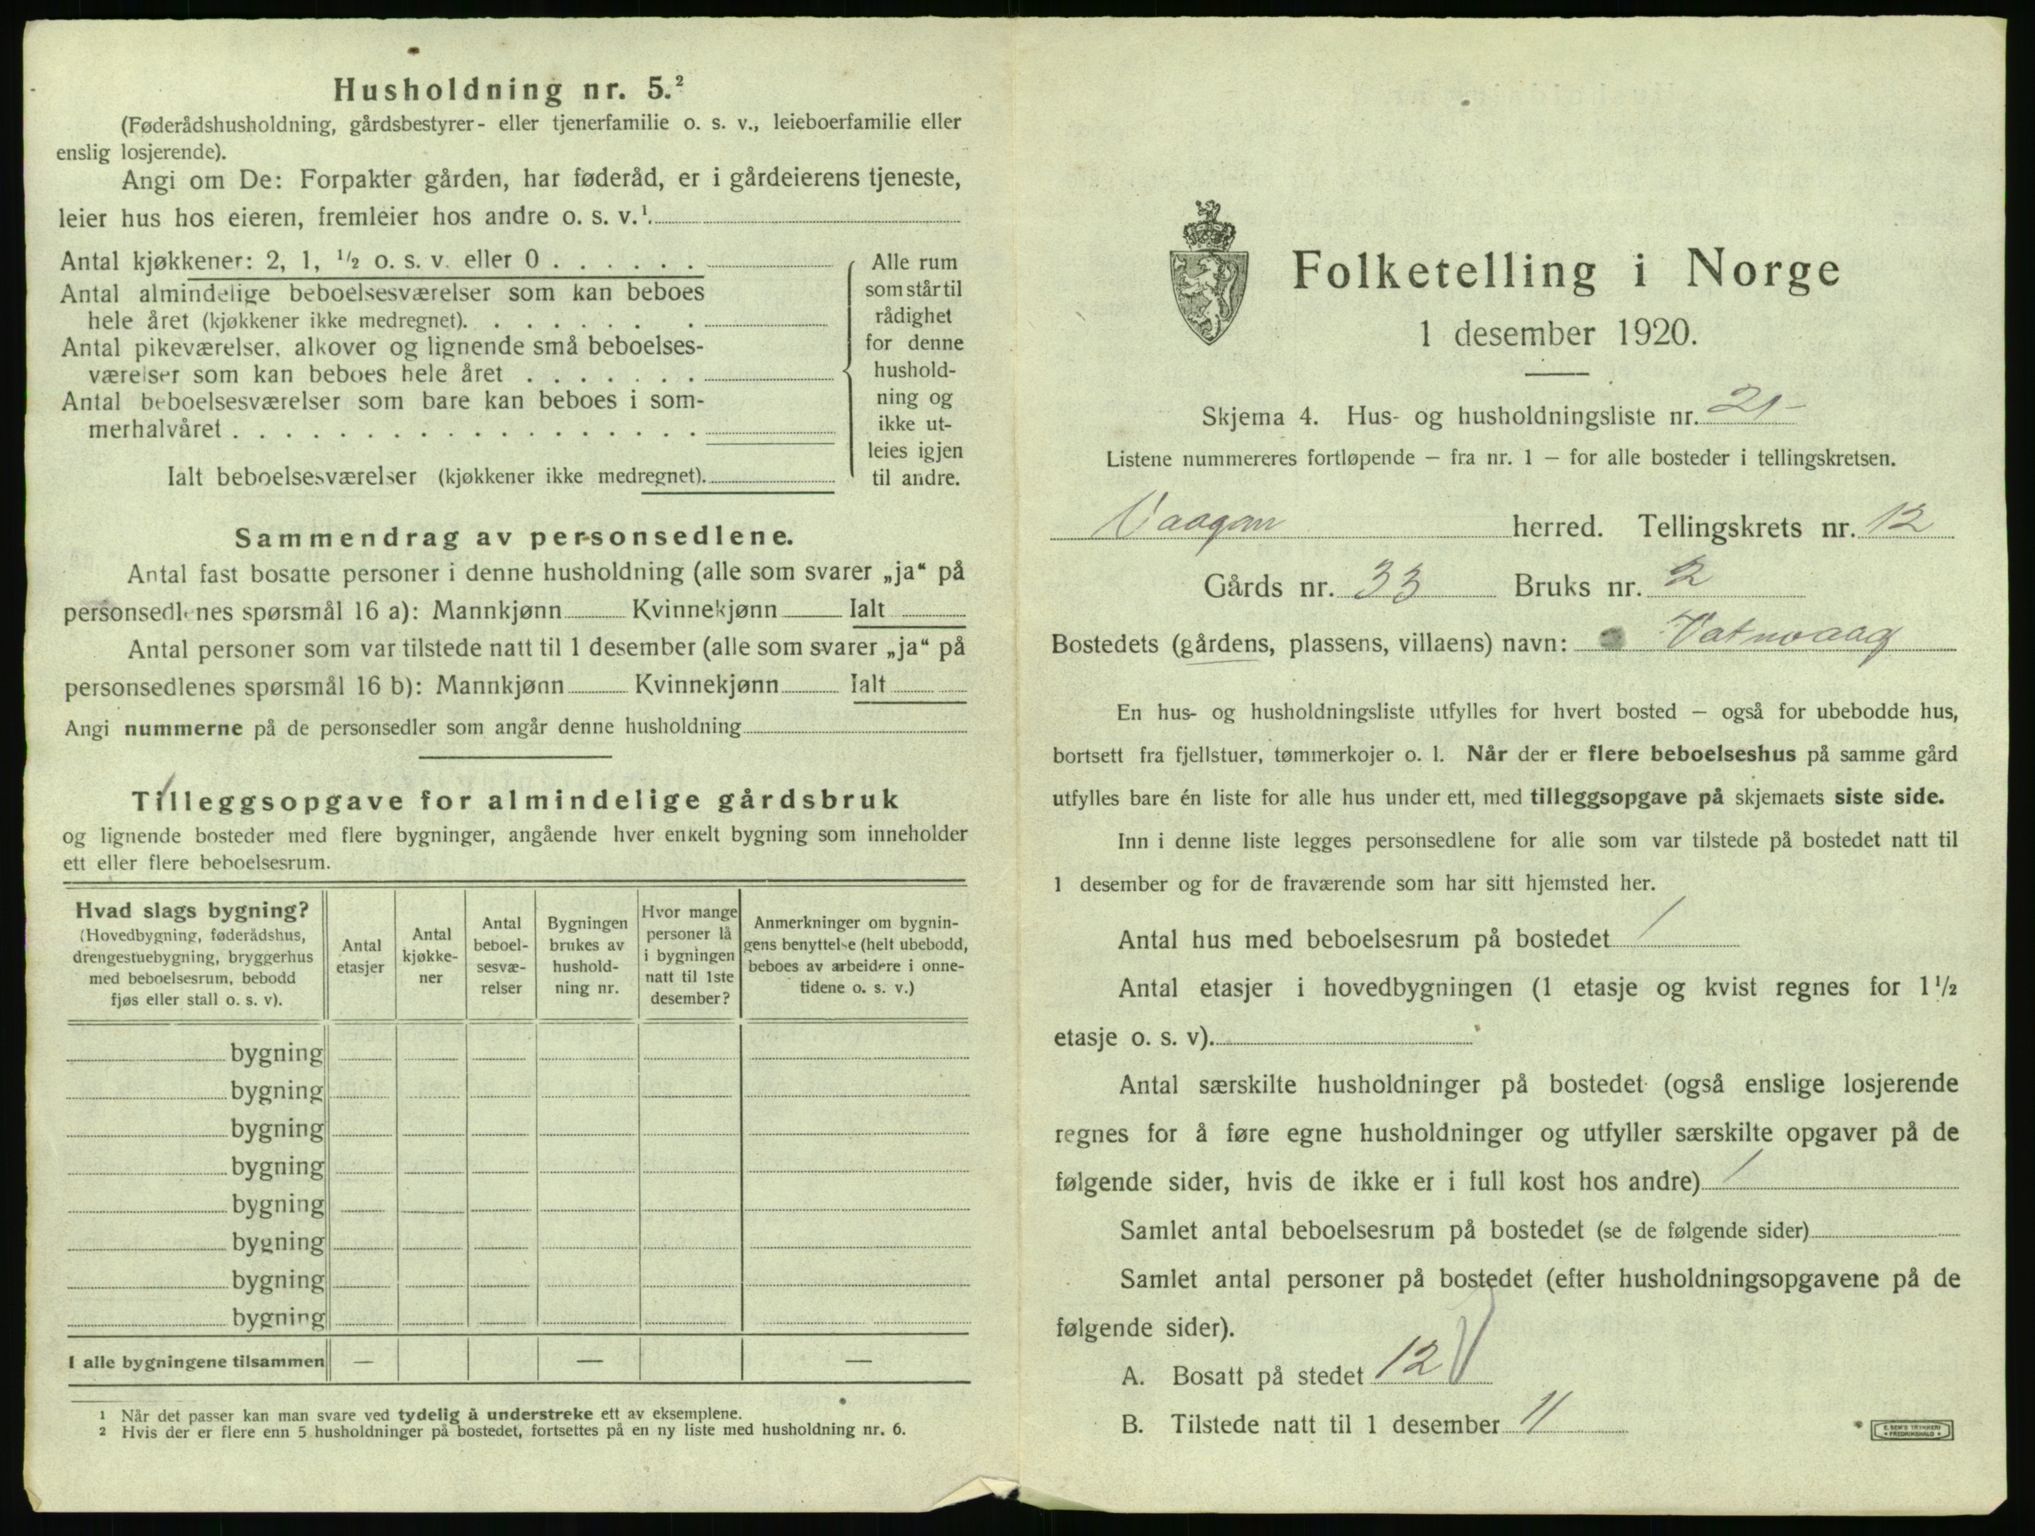 Husholdning nr. 5.²
(Føderådshusholdning, gårdsbestyrer- eller tjenerfamilie o. s. v., leieboerfamilie eller
enslig losjerende).
Angi om De: Forpakter gården, har føderåd, er i gårdeierens tjeneste,
leier hus hos eieren, fremleier hos andre o. s. v.¹
Antal kjøkkener: 2, 1, ½ o. s. v. eller 0 . . . . . .
Antal almindelige beboelsesværelser som kan beboes
hele året (kjøkkener ikke medregnet). . . . . . . .
Antal pikeværelser, alkover og lignende små beboelses-
værelser som kan beboes hele året . . . . . . .
Antal beboelsesværelser som bare kan beboes i som-
merhalvåret . . . . . . . . . . . . . . . . . .
Ialt beboelsesværelser (kjøkkener ikke medregnet).
Alle rum
som står til
rådighet
for denne
hushold-
ning og
ikke ut-
leies igjen
til andre.
Sammendrag av personsedlene.
Antal fast bosatte personer i denne husholdning (alle som svarer „ja“ på
personsedlenes spørsmål 16 a): Mannkjønn Kvinnekjønn Ialt
Antal personer som var tilstede natt til 1 desember (alle som svarer „ja“ på
personsedlenes spørsmål 16 b): Mannkjønn Kvinnekjønn Ialt
Angi nummerne på de personsedler som angår denne husholdning
Tilleggsopgave for almindelige gårdsbruk
og lignende bosteder med flere bygninger, angående hver enkelt bygning som inneholder
ett eller flere beboelsesrum.
Hvad slags bygning?
(Hovedbygning, føderådshus,
drengestuebygning, bryggerhus
med beboelsesrum, bebodd
fjøs eller stall o. s. v).
Antal
etasjer
Antal
kjøkke-
ner
Antal
beboel-
sesvæ-
relser
Bygningen
brukes av
hushold-
ning nr.
Hvor mange
personer lå
i bygningen
natt til 1ste
desember?
Anmerkninger om bygnin-
gens benyttelse (helt ubebodd,
beboes av arbeidere i onne-
tidene o. s. v.)
bygning
bygning
bygning
bygning
bygning
bygning
bygning
bygning
I alle bygningene tilsammen — — —
¹ Når det passer kan man svare ved tydelig å understreke ett av eksemplene.
² Hvis der er flere enn 5 husholdninger på bostedet, fortsettes på en ny liste med husholdning nr. 6.
Folketelling i Norge
1 desember 1920.
Skjema 4. Hus- og husholdningsliste nr. 21-
Listene nummereres fortløpende — fra nr. 1 — for alle bosteder i tellingskretsen.
Vaagan herred. Tellingskrets nr. 12
Gårds nr. 33 Bruks nr. 2
Bostedets (gårdens, plassens, villaens) navn: Vatnvaag
En hus- og husholdningsliste utfylles for hvert bosted — også for ubebodde hus,
bortsett fra fjellstuer, tømmerkojer o. l. Når der er flere beboelseshus på samme gård
utfylles bare én liste for alle hus under ett, med tilleggsopgave på skjemaets siste side.
Inn i denne liste legges personsedlene for alle som var tilstede på bostedet natt til
1 desember og for de fraværende som har sitt hjemsted her.
Antal hus med beboelsesrum på bostedet 1
Antal etasjer i hovedbygningen (1 etasje og kvist regnes for 1½
etasje o. s. v).
Antal særskilte husholdninger på bostedet (også enslige losjerende
regnes for å føre egne husholdninger og utfyller særskilte opgaver på de
følgende sider, hvis de ikke er i full kost hos andre) 1
Samlet antal beboelsesrum på bostedet (se de følgende sider)
Samlet antal personer på bostedet (efter husholdningsopgavene på de
følgende sider).
A. Bosatt på stedet 12
B. Tilstede natt til 1 desember 11